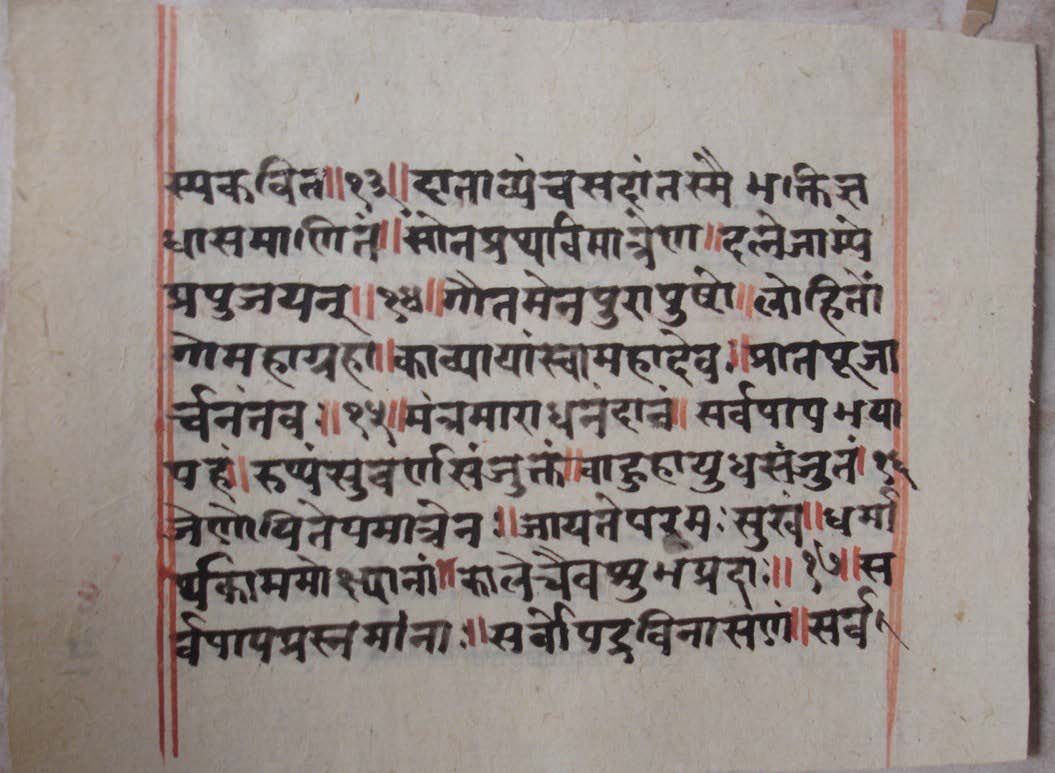 स्पकवित॥१३॥दातव्यंचसदांतस्मै भक्तिज्ञ
धासमाणितं॥सोनप्रथविमात्रेण॥दत्नेजाम्पे
प्रपुजयन्॥१४॥गौतमेनपुरापुषो॥लोहितों
गोमहाग्रहा॥काव्यायांस्वामहादेव॥प्रानपूजा
र्चनंनव:॥१५॥मंत्रमाराधनंदानं॥सर्वपापभया
पहं॥रुप्यंसुवर्णसंजुक्तं॥वाहुहायुधसंजुतं॥१६
जेणोपितेपमात्रेन:॥जायतेपरम:सुखं॥धर्मा
र्थकाममोक्ष्यानां॥कालेचैवप्युभप्रदा:॥१७॥स
र्वपापप्रस्नमांना:॥सर्वोपद्रविनासेणं॥सर्व